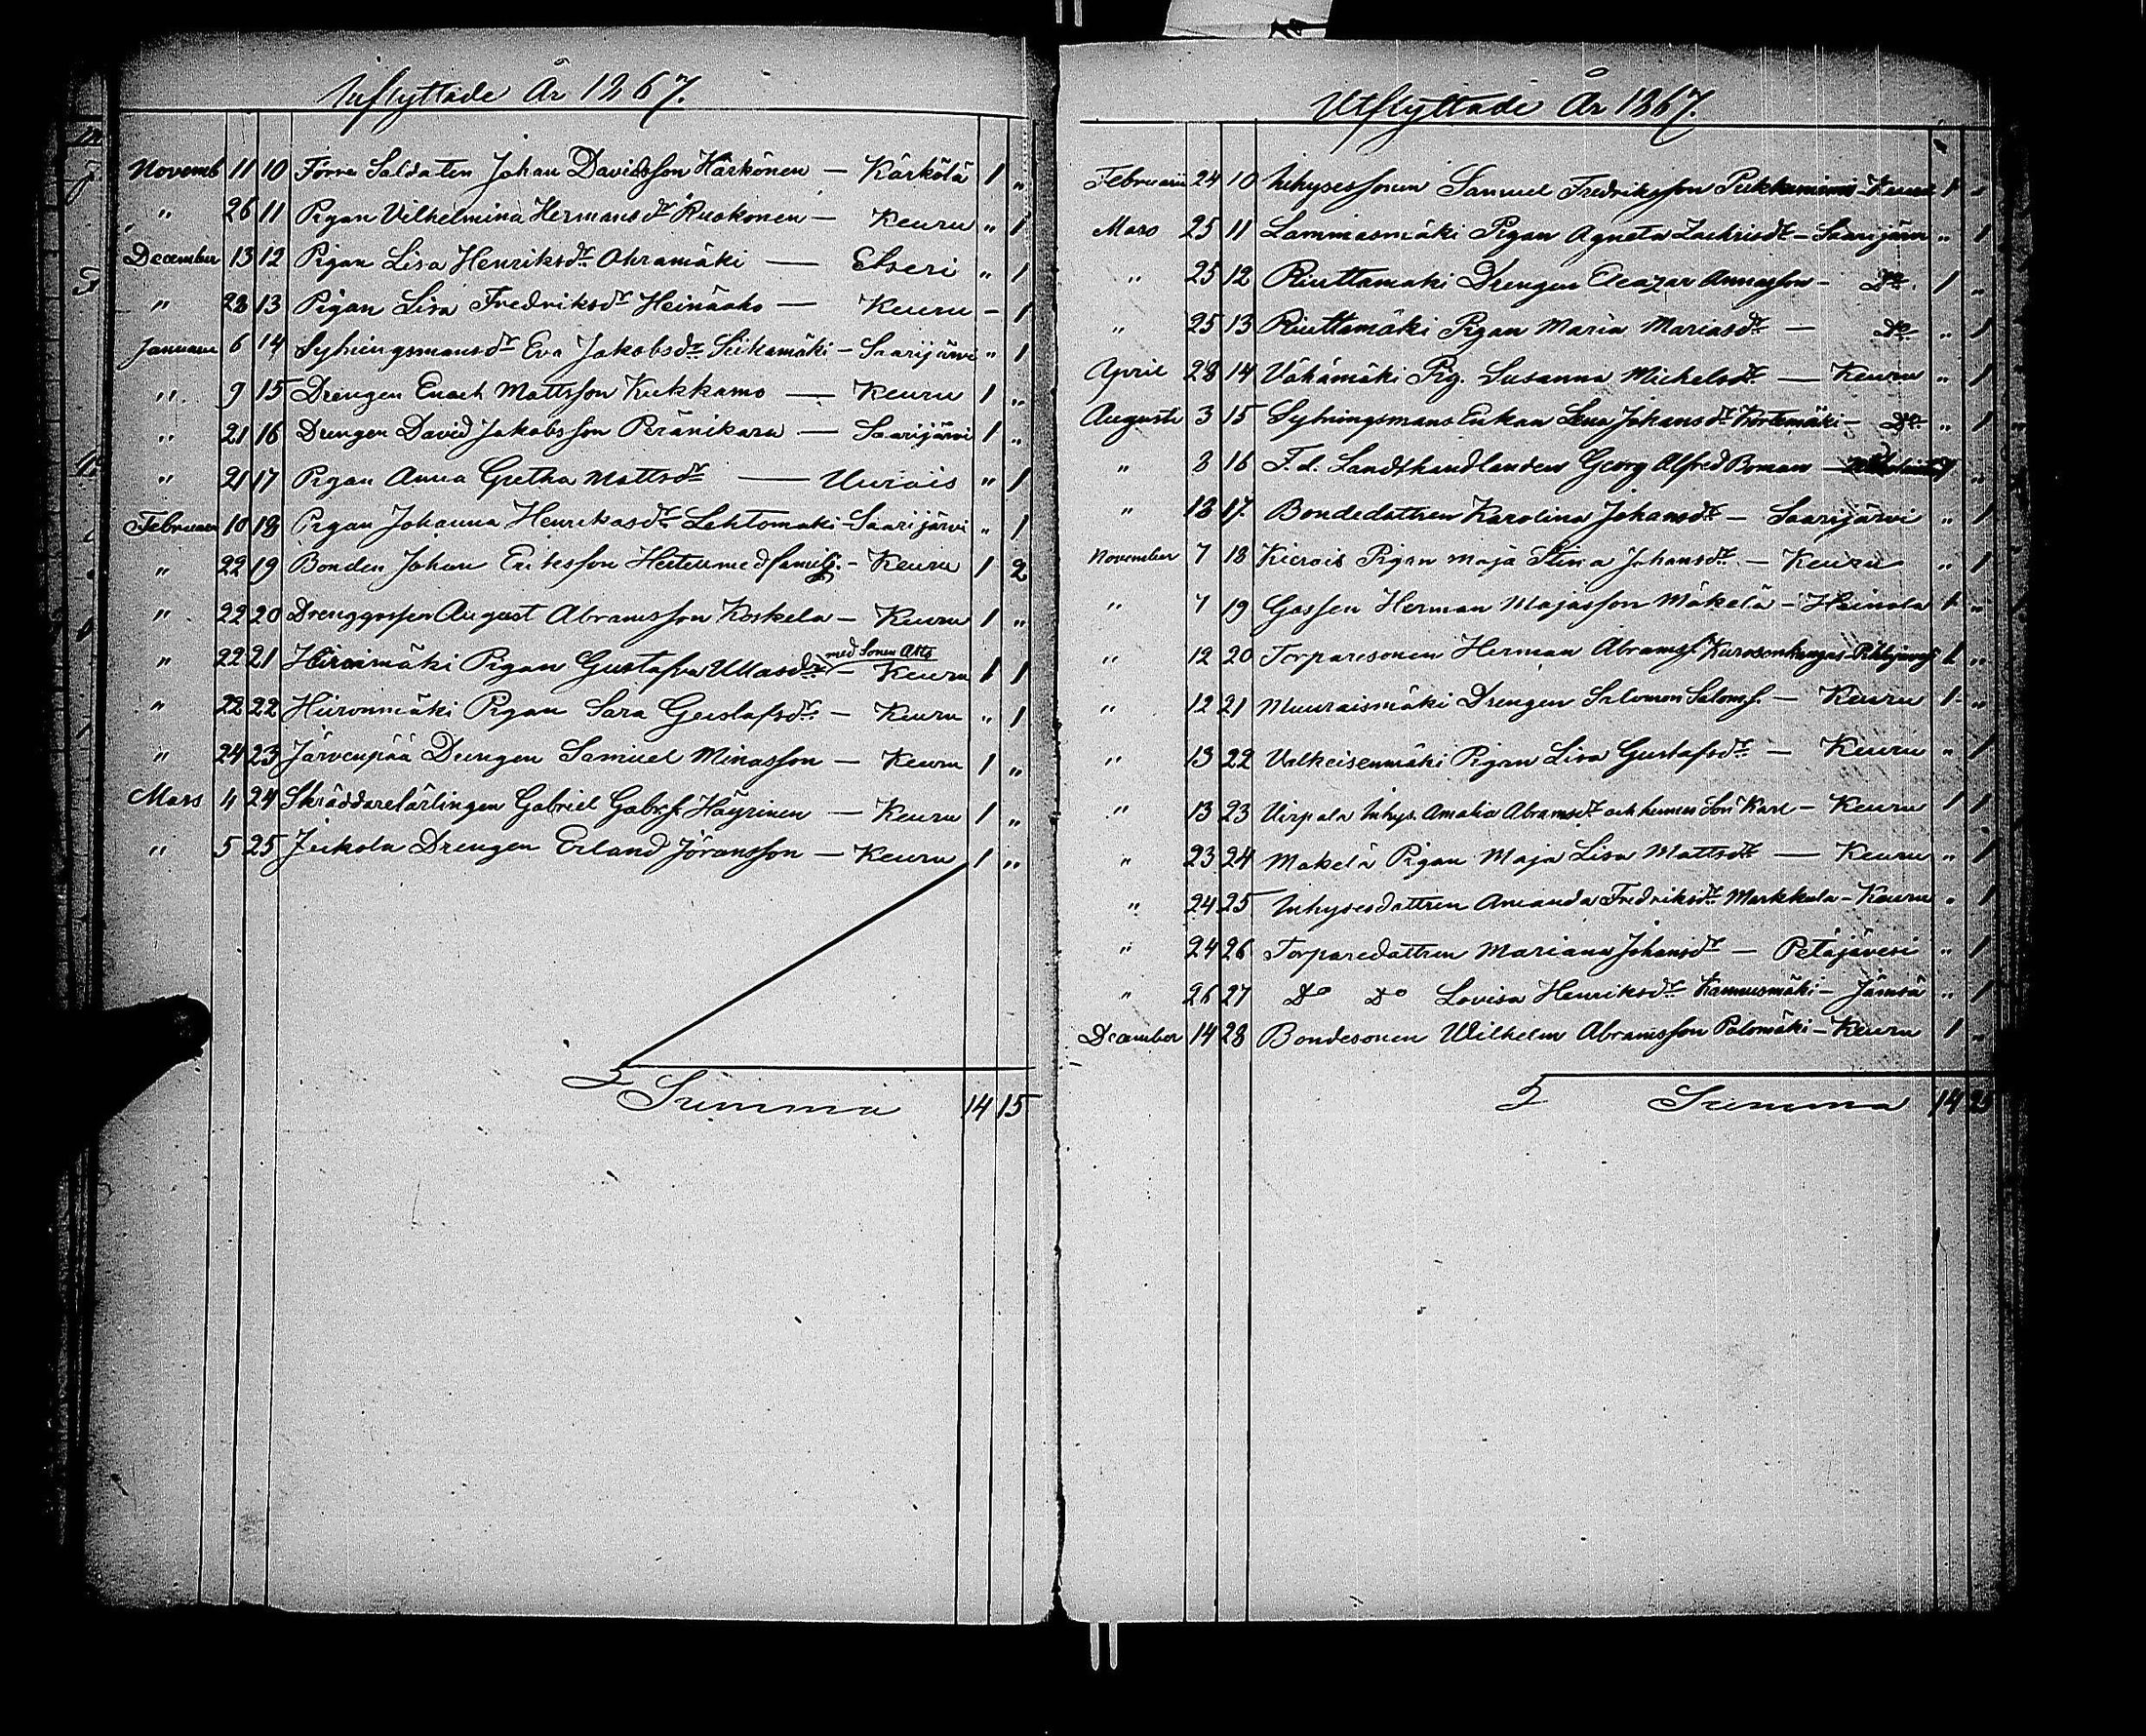 Inflyttade År 1867.
Novemb 11 10 Förra Soldaten Johan Davidsson Härkönen — Kärkölä 1 "
" 26 11 Pigan Vilhelmina Hermansdr Ruokonen — Keuru " 1
December 13 12 Pigan Lisa Henriksdr Ahramäki — Etseri " 1
" 28 13 Pigan Lisa Fredriksdr Heinäaho — Keuru – 1
Januari 6 14 Sytningsmansdr Eva Jakobsdr Siikamäki – Saarijärvi " 1
" 9 15 Drengen Enoch Mattsson Kukkamo — Keuru 1 "
" 21 16 Drengen David Jakobsson Peränikara — Saarijärvi 1 "
" 21 17 Pigan Anna Gretha Mattsdr — Uurais " 1
Februari 10 18 Pigan Johanna Henriksdr Lehtomäki – Saarijärvi " 1
" 22 19 Bonden Johan Eriksson med familj. – Keuru 1 2
" 22 20 Drenggossen August Abramsson Koskela — Keuru 1 "
med Sonen
" 22 21 Hirvimäki Pigan Gustafva Ullasdr – Keuru 1 1
" 22 22 Hironmäki Pigan Sara Gustafsdr — Keuru " 1
" 24 23 Järvenpää Drengen Samuel Minasson — Keuru 1 "
Mars 4 24 Skräddarelärlingen Gabriel Gabrs. Häyrinen — Keuru 1 "
" 5 25 Jukola Drengen Erland Jöransson — Keuru 1 "
Summa 14 15
Utflyttade År 1867.
Februarii 24 10 Inhysessonen Samuel Fredriksson – Keuru 1 "
Mars 25 11 Lammasmäki Pigan Agneta Zachrisdr – Saarijärvi " 1
" 25 12 Riuttamäki Drengen Eleazar Annasson – Do. 1 "
" 25 13 Riuttamäki Pigan Maria Mariasdr — Do " 1
April 28 14 Vähämäki Pig. Susanna Michelsdr — Keuru " 1
Augusti 3 15 Sytningsmans Enkan Lena Johansdr Kortemäki – Do " 1
" 8 16 F.d. Landthandlanden Georg Alfred Boman — 1 "
" 18 17 Bondedottren Karolina Johansdr — Saarijärvi " 1
November 7 18 Pigan Maja Stina Johansdr — Keuru " 1
" 7 19 Gossen Herman Majasson Mäkelä – Heinola 1 "
" 12 20 Torparesonen Herman Abramss. 1 "
" 12 21 Muuraismäki Drengen Salomon Saloms. — Keuru 1 "
" 13 22 Valkeisenmäki Pigan Lisa Gustafsdr — Keuru " 1
" 13 23 Virpala Inhys. Amalia Abramsdr och hennes Son Karl – Keuru 1 1
" 23 24 Mäkelä Pigan Maja Lisa Mattsdr — Keuru " 1
" 24 25 Inhysesdottren Amanda Fredriksdr Markkula – Keuru " 1
" 24 26 Torparedottren Mariana Johansdr — Petäjävesi " 1
" 26 27 Do Do Lovisa Henriksdr Kannusmäki – Jämsä " 1
December 14 28 Bondesonen Wilhelm Abramsson Palomäki – Keuru 1 "
Summa 14